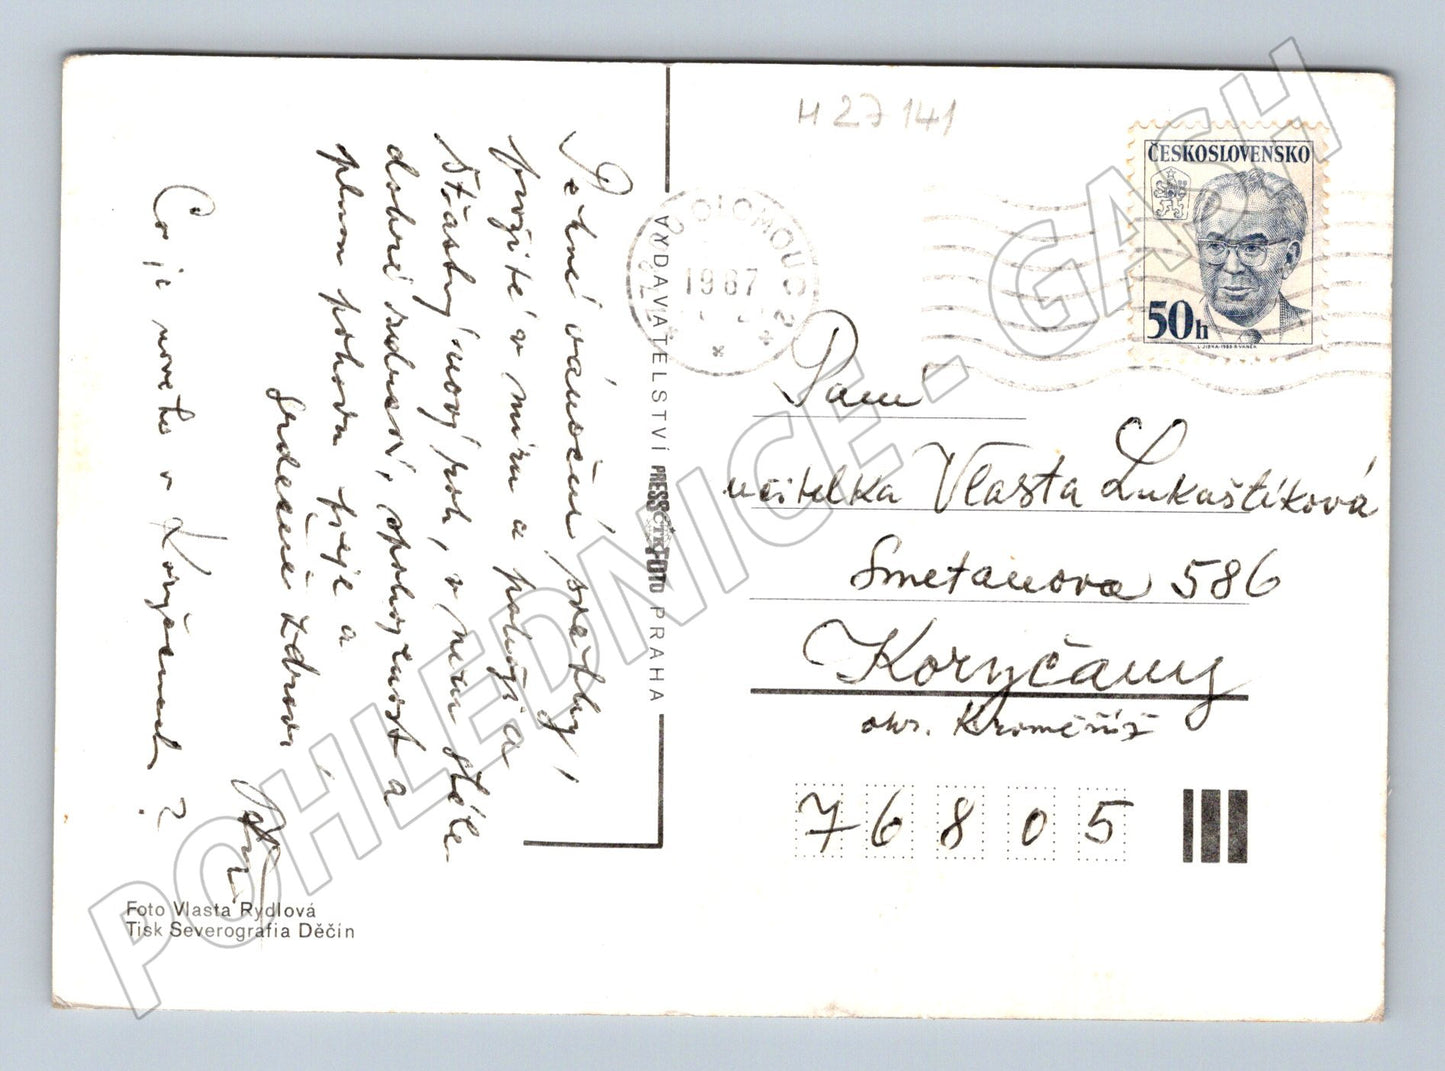 H 27 141
Pěkné vánoční svátky,
prožité v míru a pohodě a
šťastný nový rok, v něm stále
dobré zdraví, spokojenost a
plnou pohodu přeje a
srdečně zdraví
Co je nového v Koryčanech?
Foto Vlasta Rydlová
Tisk Severografia Děčín
VYDAVATELSTVÍ PRESSFOTO PRAHA
ČTK
OLOMOUC 2
1987
ČESKOSLOVENSKO
50h
Paní
učitelka Vlasta Lukaštíková
Smetanova 586
Koryčany
okr. Kroměříž
76805
POHLEDNICE - GASH